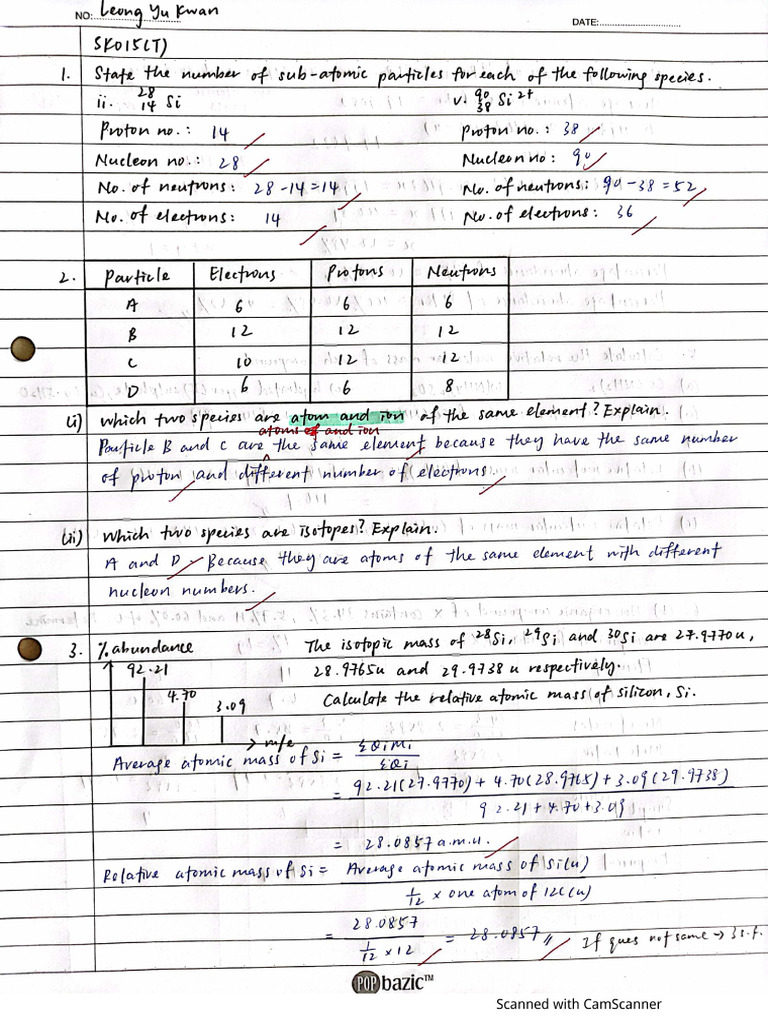 NO: Leong Yu Kwan
DATE:
SK015(T)
1. State the number of sub-atomic particles for each of the following species.
ii. 28 14 Si v. 90 38 Si 2+
Proton no.: 14 Proton no.: 38
Nucleon no.: 28 Nucleon no: 90
No. of neutrons: 28 - 14 = 14 No. of neutrons: 90 - 38 = 52
No. of electrons: 14 No. of electrons: 36
2. Particle Electrons Protons Neutrons
A 6 6 6
B 12 12 12
C 10 12 12
D 6 6 8
(i) Which two species are atom and ion of the same element? Explain.
atoms of and ion
Particle B and C are ^ the same element because they have the same number
of proton and different number of electrons.
(ii) Which two species are isotopes? Explain.
A and D. Because they are atoms of the same element with different
nucleon numbers.
3. % abundance The isotopic mass of 28Si, 29Si and 30Si are 27.9770u,
92.21 28.9765u and 29.9738 u respectively.
4.70 Calculate the relative atomic mass of silicon, Si.
3.09
m/e
Average atomic mass of Si = ΣQiMi
ΣQi
= 92.21(27.9770) + 4.70(28.9765) + 3.09(29.9738)
92.21 + 4.70 + 3.09
= 28.0857 a.m.u.
Relative atomic mass of Si = Average atomic mass of Si(u)
1/12 × one atom of 12C(u)
= 28.0857
1/12 × 12
= 28.0857 // If ques not same → 3 s.f.
POP bazic™
Scanned with CamScanner